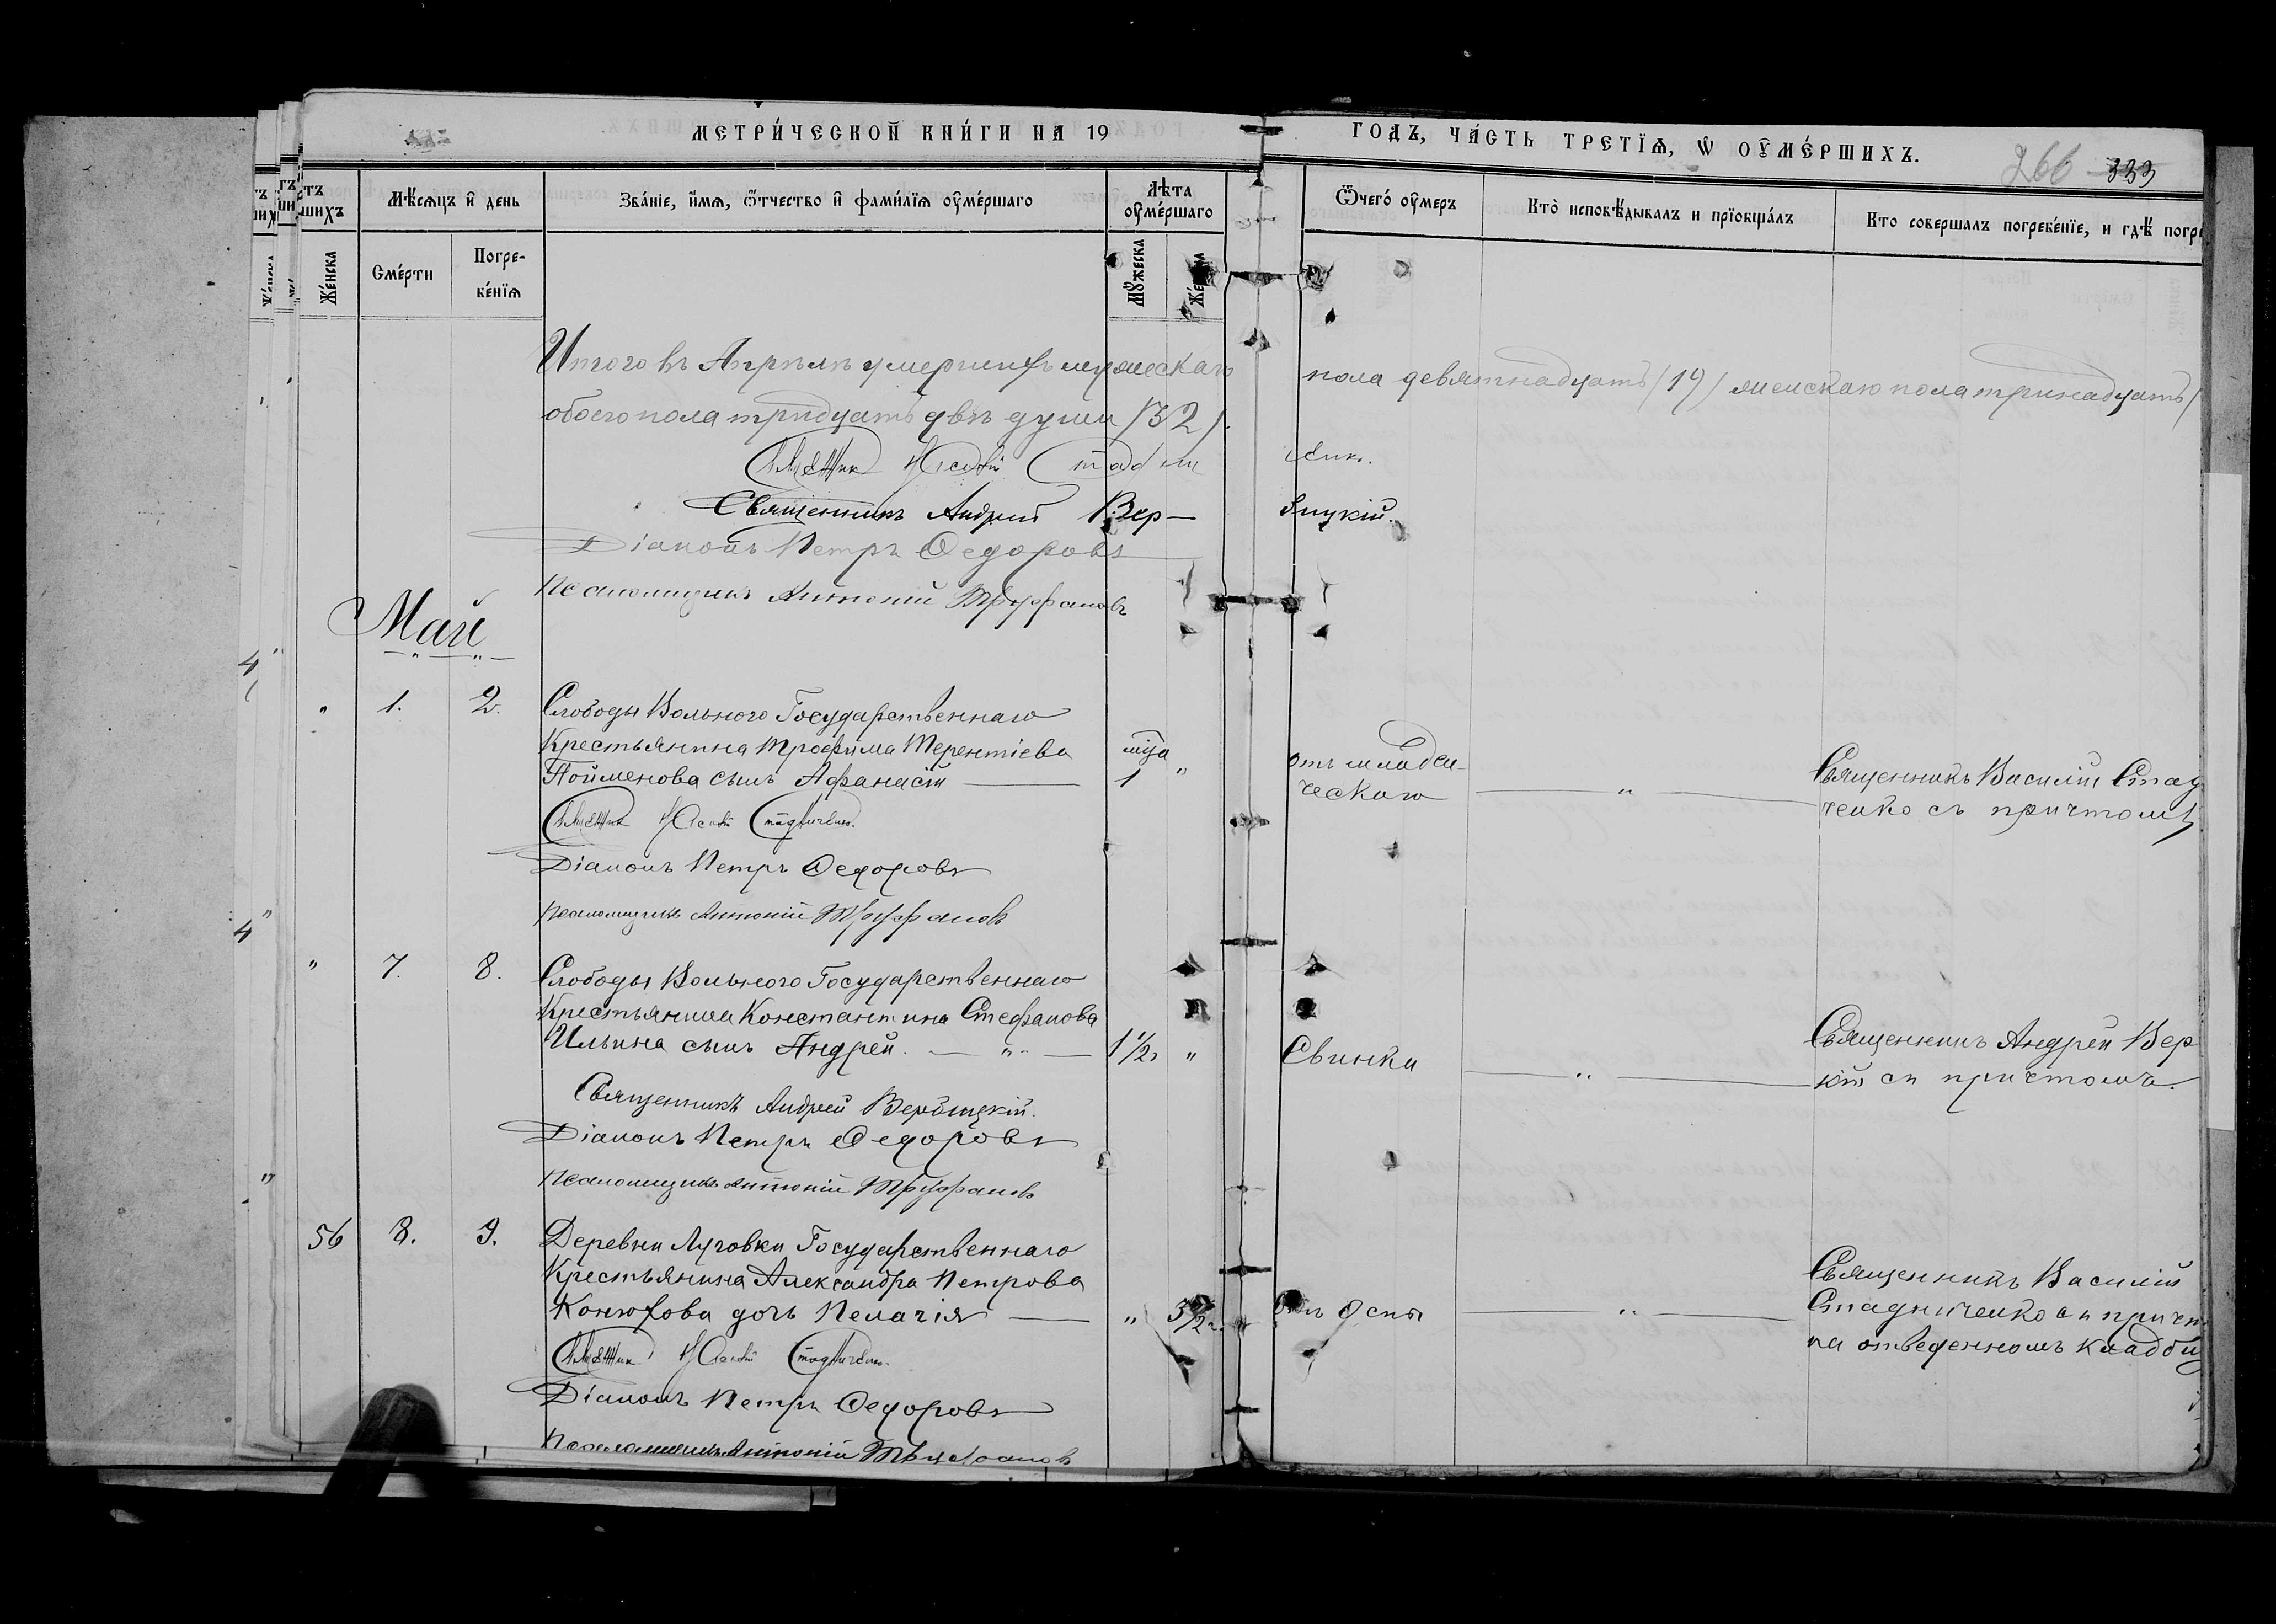 МЕТРИ́ЧЕСКОЙ КНИ́ГИ НА 19
ГОДЪ, ЧА́СТЬ ТРЕТІѦ, Ѡ ОУМЕ́РШИХЪ.
266 333
Мѣсѧцъ и день
Зва́ніе, и́мѧ, ѿтчество и фами́ліѧ оуме́ршаго
Лѣта оуме́ршаго
Ѿчегѡ оумеръ
Кто̀ исповѣдывалъ и прїобща́лъ
Кто совершалъ погребе́ніе, и гдѣ погре
Же́нска
Сме́рти
Погре-
бе́ніѧ
Мꙋжеска
Итого въ Апрѣлѣ умершихъ мужескаго пола девятнадцать (19) женскаго пола тринадцать (
обоего пола тридцать двѣ души (32).
Священникъ Андрей Вербицкій.
Діаконъ Петръ Ѳедоровъ
Псаломщикъ Антоній Труфановъ
Май
" 1. 2.
Слободы Вольного Государственнаго
Крестьянина Трофима Терентіева
Пойменова сынъ Афанасій
мца
1 "
отъ младен-
ческаго
"
Священникъ Василій Стад
ченко съ причтомъ
Діаконъ Петръ Ѳедоровъ
Псаломщикъ Антоній Труфановъ
" 7. 8.
Слободы Вольного Государственнаго
Крестьянина Константина Стефанова
Ильина сынъ Андрей.
1 1/2 "
Свинки
"
Священникъ Андрей Вер
кій съ причтомъ.
Священникъ Андрей Вербицкій.
Діаконъ Петръ Ѳедоровъ
Псаломщикъ Антоній Труфановъ
56 8. 9.
Деревни Луговки Государственнаго
Крестьянина Александра Петрова
Конюхова дочь Пелагія
" 3 1/2
отъ Оспы
"
Священникъ Василій
Стадниченко съ причт
на отведенномъ кладби
Діаконъ Петръ Ѳедоровъ
Псаломщикъ Антоній Труфановъ